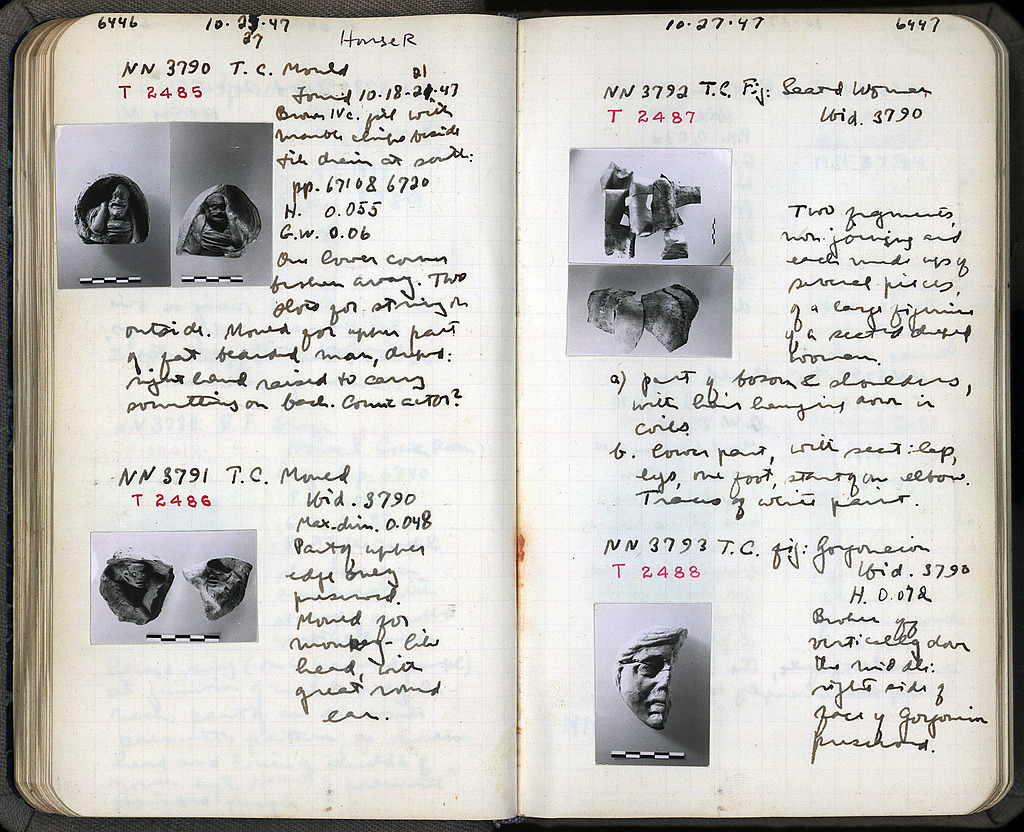 6446
10·25·47
27
House R
NN 3790 T. C. Mould
T 2485
Found 10-18-21·47
Brown IV c. fill with
marble chips beside
tile drain at south:
pp. 6710 & 6720
H. 0.055
G.W. 0.06
One lower corner
broken away. Two
slots for string on
outside. Mould for upper part
of fat bearded man, draped:
right hand raised to carry
something on back. Comic actor?
NN 3791 T. C. Mould
T 2486
Ibid. 3790
Max. dim. 0.048
Part of upper
edge only
preserved.
Mould for
monkey-like
head, with
great round
ear.
10·27·47
6447
NN 3792 T. C. Fig: Seated Woman
T 2487
Ibid. 3790
Two fragments,
non-joining and
each made up of
several pieces,
of a large figurine
of a seated draped
woman.
a) part of bosom & shoulders,
with hair hanging down in
coils.
b. lower part, with seat: lap,
legs, one foot, start of an elbow.
Traces of white paint.
NN 3793 T. C. fig: Gorgoneion
T 2488
Ibid. 3790
H. 0.072
Broken off
vertically down
the middle:
right side of
face of Gorgoneion
preserved.